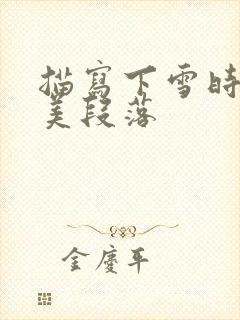 描寫下雪時
美段落
金慶平